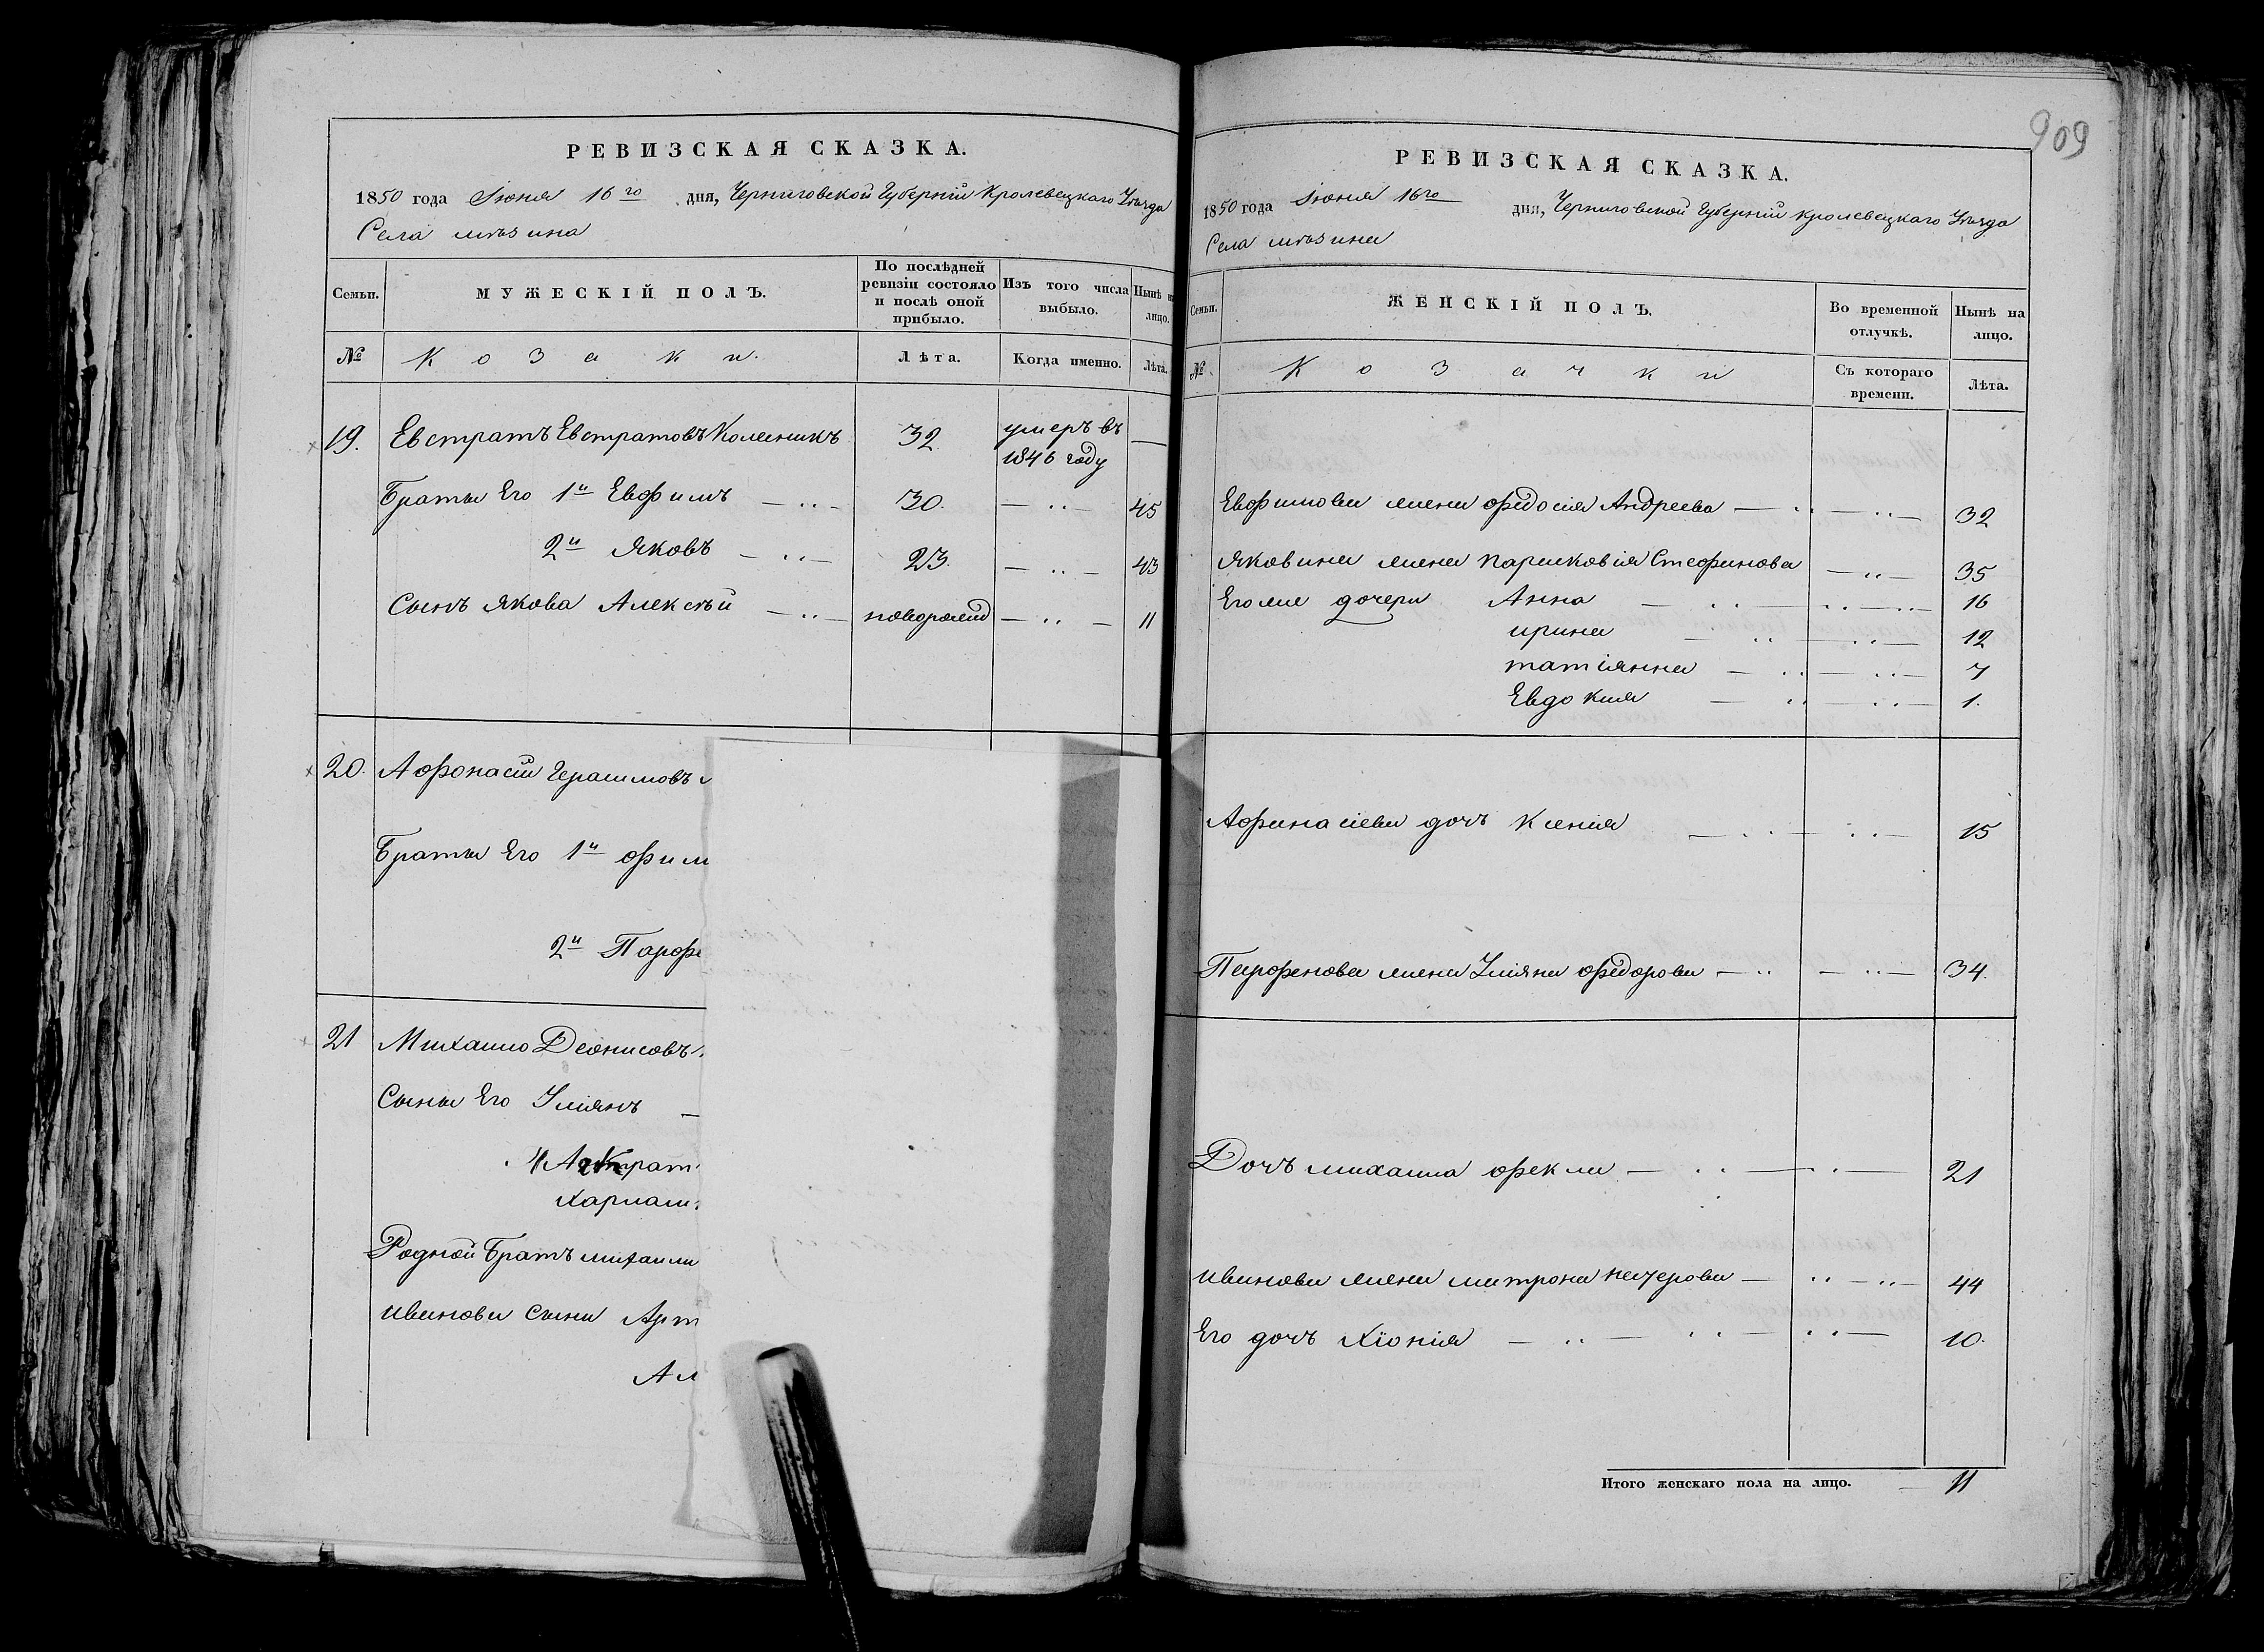 РЕВИЗСКАЯ СКАЗКА.
1850 года Іюня 16го дня, Черниговской Губерніи Кролевецкаго Уѣзда
Села Мѣзина
Семьи.
МУЖЕСКІЙ ПОЛЪ.
По послѣдней ревизіи состояло и послѣ оной прибыло.
Изъ того числа выбыло.
Нынѣ на лицо.
№
Козаки.
Лѣта.
Когда именно.
Лѣта.
19. Евстратъ Евстратовъ Колесникъ 32 умеръ въ —
1846 году
Браты Его 1й Евфимъ — .. — 30. — .. — 45
2й Яковъ — .. — 23. — .. — 43
Сынъ Якова Алексѣй — .. — новорожд — .. — 11
20. Афонасій Герасимовъ
Браты Его 1й Фил
2й Парфе
21 Михайло Деонисовъ
Сыны Его Уліянъ —
Харлам
Родной Братъ михаил
Иванова сыны Арт
Ал
909
РЕВИЗСКАЯ СКАЗКА.
1850 года Іюня 16го дня, Черниговской Губерніи Кролевецкаго Уѣзда
Села Мѣзина
Семьи.
ЖЕНСКІЙ ПОЛЪ.
Во временной отлучкѣ.
Нынѣ на лицо.
№
Козачки
Съ котораго времени.
Лѣта.
Евфимова жена Федосія Андреева — .. — .. — 32
Яковина жена Парасковія Стефанова — .. — 35
Его же дочери Анна — .. — .. — .. — 16
ирина — .. — .. — 12
татіянна — .. — .. — 7
Евдокия — .. — .. — 1.
Афанасіева дочъ Ксенія — .. — .. — 15
Парфенова жена Уліяна Федорова — .. — .. — 34.
Дочъ михаила Фекла — .. — .. — 21
Иванова жена матрона нечерова — .. — .. — 44
Его дочъ Хіонія — .. — .. — .. — 10.
Итого женскаго пола на лицо. — 11